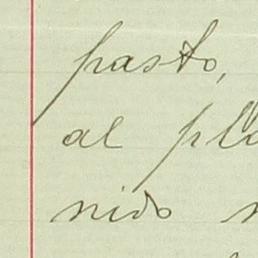 pasto,
al
nido